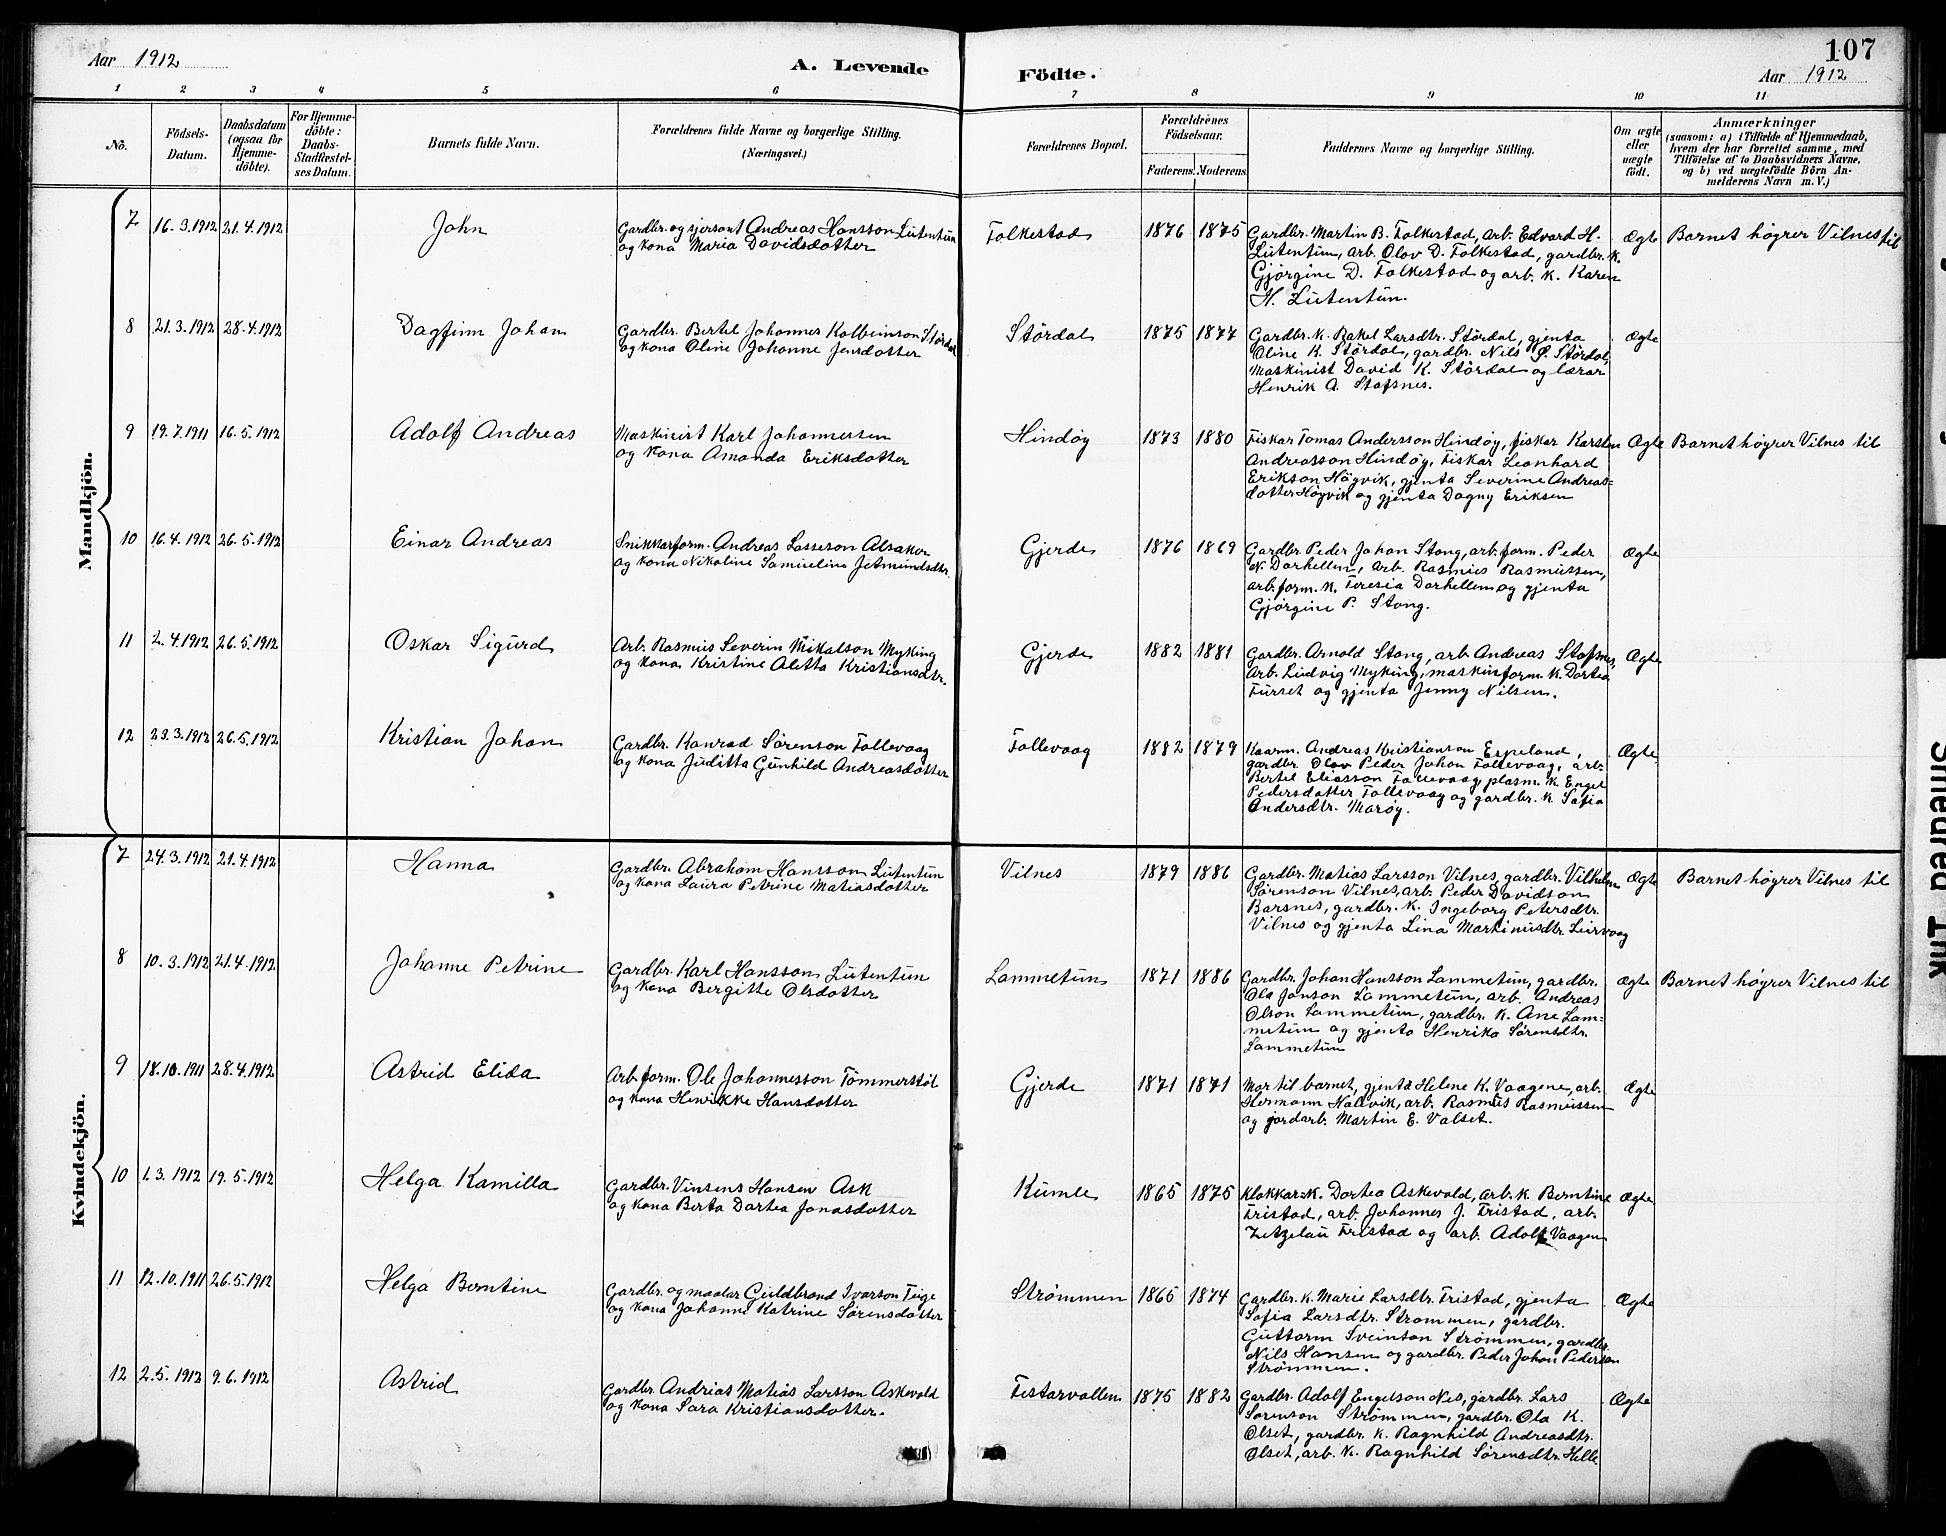 107
Aar 1912 A. Levende Födte. Aar 1912
1 2 3 4 5 6 7 8 9 10 11
No. Födsels-Datum. Daabsdatum (ogsaa for Hjemme-döbte). For Hjemme-döbte: Daabs-Stadfæstel-ses Datum. Barnets fulde Navn. Forældrenes fulde Navne og borgerlige Stilling. (Næringsvei.) Forældrenes Bopæl. Forældrenes Födselsaar. Faderens. Moderens. Faddernes Navne og borgerlige Stilling. Om ægte eller uægte födt. Anmærkninger (saasom: a) i Tilfælde af Hjemmedaab, hvem der har forrettet samme, med Tilföielse af to Daabsvidners Navne, og b) ved uægtefödte Börn An-melderens Navn m. V.)
Mandkjön.
7 16.3.1912 21.4.1912 John Gardbr. og sjersant Andreas Hansson Lutentun
og kona Maria Davidsdotter
Folkestad 1876 1875 Gardbr. Martin B. Folkestad, arb. Edvard H.
Lutentun, arb. Olav D. Folkestad, gardbr. k.
Gjørgine D. Folkestad og arb. k. Karen
H. Lutentun.
Ægte Barnet høgrer Vilnes til
8 21.3.1912 28.4.1912 Dagfinn Johan Gardbr. Bertel Johannes Kolbeinson Stördal
og kona Oline Johanne Jensdotter
Stördal 1875 1877 Gardbr. k. Rakel Larsdtr. Stördal, gjenta
Oline K. Stördal, gardbr. Nils P. Stördal,
Maskinist David K. Stördal og lærar
Henrik A. Stafsnes.
Ægte
9 19.7.1911 16.5.1912 Adolf Andreas Maskinist Karl Johannessen
og kona Amanda Eriksdotter
Hindøy 1873 1880 Fiskar Tomas Andersson Hindøy, fiskar Karsten
Andreasson Hindøy, Fiskar Leonhard
Erikson Høgvik, gjenta Severine Andreas-
dotter Høgvik og gjenta Dagny Eriksen
Ægte Barnet høgrer Vilnes til
10 16.4.1912 26.5.1912 Einar Andreas Snikkarform. Andreas Lasseson Alsaker
og kona Nikoline Samueline Jetmundsdtr.
Gjerde 1876 1869 Gardbr. Peder Johan Stang, arb. form. Peder
N. Darhellen, arb. Rasmus Rasmussen,
arb. form. k. Teresia Darhellen og gjenta
Gjørgine P. Stang.
Ægte
11 2.4.1912 26.5.1912 Oskar Sigurd Arb. Rasmus Severin Mikalson Myking
og kona Kristine Aletta Kristiansdtr.
Gjerde 1882 1881 Gardbr. Arnold Stang, arb. Andreas Stafsnes,
Arb. Ludvig Myking, maskinform. k. Dortea
Furset og gjenta Jenny Nilsen.
Ægte
12 23.3.1912 26.5.1912 Kristian Johan Gardbr. Konrad Sørenson Follevaag
og kona Juditta Gunhild Andreasdotter
Follevaag 1882 1879 Kaarm. Andreas Kristianson Espeland,
gardbr. Olav Peder Johan Follevaag, arb.
Bertel Eliasson Follevaag, plasm. k. Engel
Pedersdotter Follevaag og gardbr. k. Sofia
Andersdtr. Marøy.
Ægte
Kvindekjön.
7 24.3.1912 21.4.1912 Hanna Gardbr. Abraham Hansson Lutentun
og kona Laura Petrine Matiasdotter
Vilnes 1879 1886 Gardbr. Matias Larsson Vilnes, gardbr. Vilhelm
Sørenson Vilnes, arb. Peder Davidson
Barsnes, gardbr. k. Ingeborg Petersdtr.
Vilnes og gjenta Lina Martinusdtr. Leirvaag
Ægte Barnet høgrer Vilnes til
8 10.3.1912 21.4.1912 Johanne Petrine Gardbr. Karl Hansson Lutentun
og kona Bergitte Olsdotter
Lammetun 1871 1886 Gardbr. Johan Hansson Lammetun, gardbr.
Ola Janson Lammetun, arb. Andreas
Olson Lammetun, gardbr. k. Ane Lam-
metun og gjenta Henrika Sørensdtr.
Lammetun
Ægte Barnet høgrer Vilnes til
9 18.10.1911 28.4.1912 Astrid Elida Arb. form. Ole Johannesson Tømmerstøl
og kona Henrikke Hansdotter
Gjerde 1871 1871 Mor til barnet, gjenta Helene K. Vaagene, arb.
Hermann Hallvik, arb. Rasmus Rasmussen
og jordarb. Martin E. Valset.
Ægte
10 1.3.1912 19.5.1912 Helga Kamilla Gardbr. Vinsens Hansen Ask
og kona Berta Dortea Jonasdotter
Kumle 1865 1875 Klokkar-k. Dortea Askevold, arb. k. Berntine
Fristad, arb. Johannes J. Fristad, arb.
Fristad og arb. Adolf Vaagen
Ægte
11 12.10.1911 26.5.1912 Helga Berntine Gardbr. og maalar Guldbrand Ivarson Teige
og kona Johanne Katrine Sørensdotter
Strømmen 1865 1874 Gardbr. k. Marie Larsdtr. Fristad, gjenta
Sofia Larsdtr. Strømmen, gardbr.
Guttorm Sveinson Strømmen, gardbr.
Nils Hansen og gardbr. Peder Johan Pederson
Strømmen.
Ægte
12 2.5.1912 9.6.1912 Astrid Gardbr. Andrias Matias Larsson Askevold
og kona Sara Kristiansdotter.
Festarvollen 1875 1882 Gardbr. Adolf Engelson Nes, gardbr. Lars
Sørenson Strømmen, gardbr. Ola K.
Olset, gardbr. k. Ragnhild Andreasdtr.
Olset, arb. k. Ragnhild Sørensdtr. Helle
Ægte